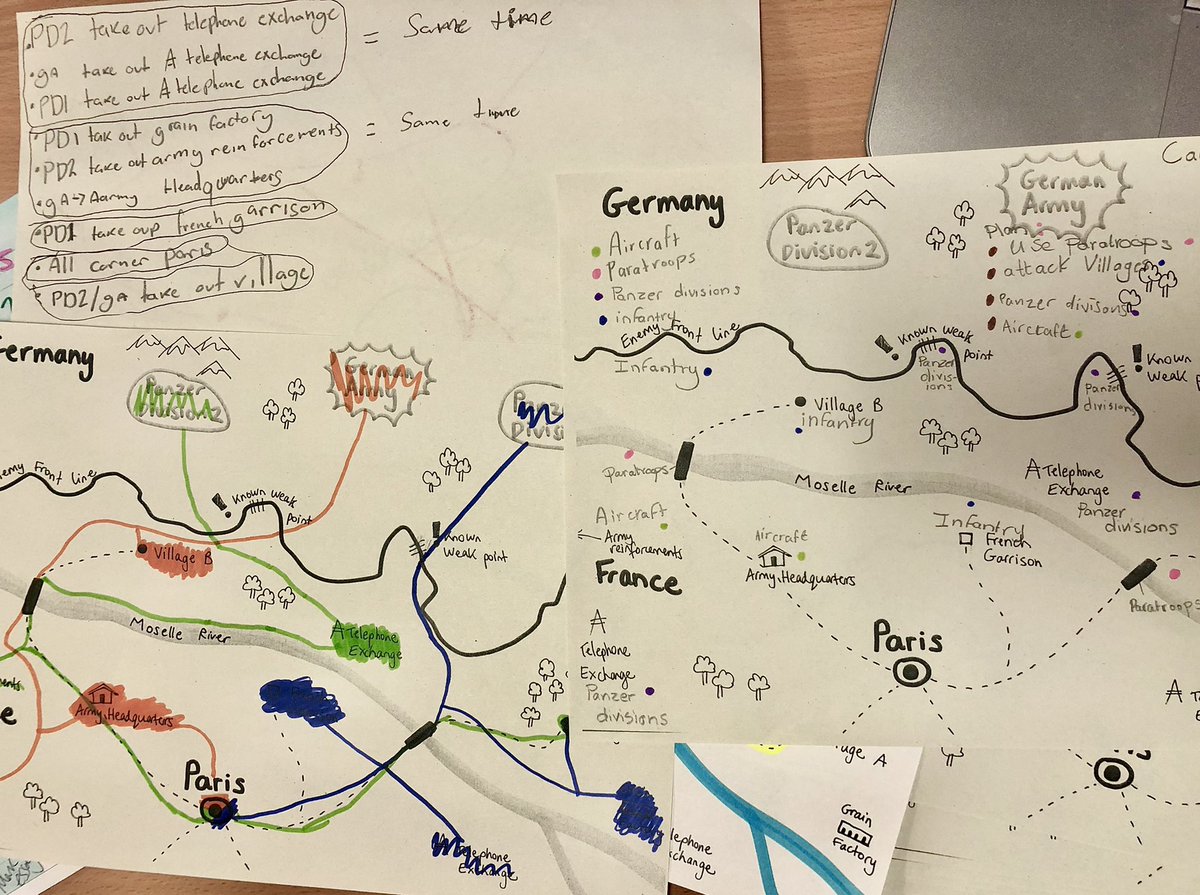 PD2 take out telephone exchange
• gA take out A telephone exchange
• PD1 take out A telephone exchange
= Same time
• PD1 tak out grain factory
• PD2 take out army reinforcements
• gA → Aarmy Headquarters
= Same time
• PD1 take oup french garrison
• All corner paris
• PD2/gA take out village
Germany
Aircraft
Paratroops
Panzer divisions
infantry
Panzer
Division 2
German
Army
Plan
Use Paratroops
attack Villages
Panzer divisons
Aircraft
Ca
Enemy Front line
Known weak
point
Panzer
divis-
ions
Known
Weak p
Panzer
divisions
Infantry
Village B
infantry
Paratroops
Moselle River
Telephone
Exchange
Panzer
divisions
Aircraft
Army
reinforcements
Aircraft
Army Headquarters
Infantry
French
Garrison
Paratroops
France
Paris
Telephone
Exchange
Panzer
divisions
ermany
Panzer
Division 2
German
Army
Panz
Divisi
Enemy Front line
Known weak
point
Known
Weak point
Village B
Moselle River
Telephone
Exchange
ments
e
Army Headquarters
Paris
Telephone
Exchange
age A
Grain
Factory
elephone
xchange